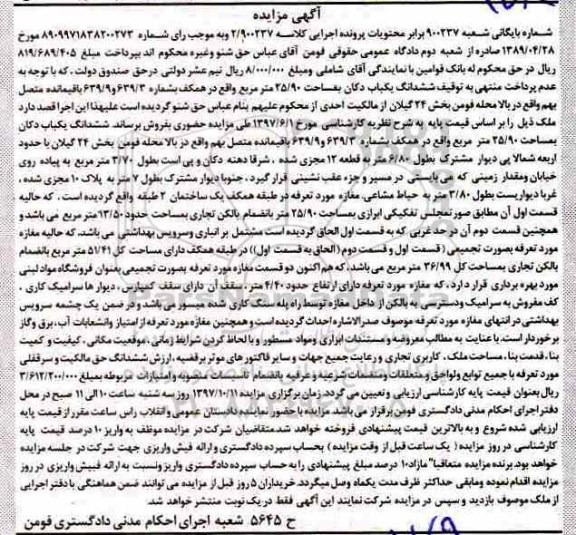 آگهی مزایده
شماره بایگانی شعبه ۹۰۰۲۳۷ برابر محتویات پرونده اجرایی کلاسه ۲/۹۰۰۲۳۷ وبه موجب رای شماره ۸۹۰۹۹۷۱۸۳۸۲۰۰۲۷۳ مورخ
۱۳۸۹/۰۴/۲۸ صادره از شعبه دوم دادگاه عمومی حقوقی فومن آقای عباس حق شنو وغیره محکوم اند بپرداخت مبلغ ۸۱۹/۶۸۹/۴۰۵
ریال در حق محکوم له بانک قوامین با نمایندگی آقای شاملی ومبلغ ۸/۰۰۰/۰۰۰ ریال نیم عشر دولتی درحق صندوق دولت ، که با توجه به
عدم پرداخت منتهی به توقیف ششدانگ یکباب دکان بمساحت ۲۵/۹۰ متر مربع واقع در همکف بشماره ۶۳۹/۳ و۶۳۹/۹ باقیمانده متصل
بهم واقع در بالا محله فومن بخش ۲۴ گیلان از مالکیت احدی از محکوم علیهم بنام عباس حق شنو گردیده است علیهذا این اجرا قصد دارد
ملک ذیل را بر اساس قیمت پایه به شرح نظریه کارشناسی مورخ ۱۳۹۷/۶/۱ طی مزایده حضوری بفروش برساند. ششدانگ یکباب دکان
بمساحت ۲۵/۹۰ متر مربع واقع در همکف بشماره ۶۳۹/۳ و۶۳۹/۹ باقیمانده متصل بهم واقع در بالا محله فومن بخش ۲۴ گیلان با حدود
اربعه شمالا پی دیوار مشترک بطول ۶/۸۰ متر به قطعه ۱۲ مجزی شده ، شرقا دهنه دکان و پی است بطول ۳/۷۰ متر مربع به پیاده روی
خیابان ومقدار زمینی که می بایستی در مسیر و جزء عقب نشینی قرار گیرد ، جنوبا دیوار مشترک بطول ۷ متر به پلاک ۱۰ مجزی شده ،
غربا دیواریست بطول ۳/۸۰ متر به حیاط مشاعی. مغازه مورد تعرفه در طبقه همکف یک ساختمان ۲ طبقه واقع گردیده است . که حالیه
قسمت اول آن مطابق صورتمجلس تفکیکی ابرازی بمساحت ۲۵/۹۰ متر بانضمام بالکن تجاری بمساحت حدود ۱۳/۵۰ متر مربع می باشد و
همچنین قسمت دوم آن در حد غربی که به قسمت اول الحاق گردیده است مشتمل بر انباری وسرویس بهداشتی می باشد. که حالیه مغازه
مورد تعرفه بصورت تجمیعی ( قسمت اول و قسمت دوم (الحاق به قسمت اول)) در طبقه همکف دارای مساحت کل ۵۱/۴۱ متر مربع بانضمام
بالکن تجاری بمساحت کل ۳۶/۹۹ متر مربع می باشد. که هم اکنون دو قسمت مغازه مورد تعرفه بصورت تجمیعی بعنوان فروشگاه مواد لبنی
مورد بهره برداری قرار دارد ، که مغازه مورد تعرفه دارای ارتفاع حدود ۴/۴۰ متر ، سقف آن دارای سقف کمپارس ، دیوار ها سرامیک کاری ،
کف مفروش به سرامیک ودسترسی به بالکن از داخل مغازه توسط راه پله سنگ کاری شده میسور می باشد و در ضمن یک چشمه سرویس
بهداشتی در انتهای مغازه مورد تعرفه موصوف صدرالاشاره احداث گردیده است و همچنین مغازه مورد تعرفه از امتیاز وانشعابات آب ، برق وگاز
برخوردار است. با عنایت به مطالب معروضه و مستندات ابرازی ومواد مسطور و با لحاظ کردن شرایط زمانی ، موقعیت مکانی ، کیفیت و کمیت
بنا، قدمت بنا، مساحت ملک ، کاربری تجاری و رعایت جمیع جهات و سایر فاکتور های موثر بر قضیه ، ارزش ششدانگ حق مالکیت و سرقفلی
مورد تعرفه با جمیع توابع ولواحق ومتعلقات ومنضمات شرعیه و عرفیه بانضمام تاسیسات ، منصوبه وامتیازات مربوطه بمبلغ ۳/۶۱۲/۲۰۰/۰۰۰
ریال بعنوان قیمت پایه کارشناسی ارزیابی و تعیین می گردد. زمان برگزاری مزایده ۱۳۹۷/۱۰/۱۱ روز سه شنبه ساعت ۱۰ الی ۱۱ صبح در محل
دفتر اجرای احکام مدنی دادگستری فومن برقرار می باشد. مزایده با حضور نماینده دادستان عمومی وانقلاب راس ساعت مقرر از قیمت پایه
ارزیابی شده شروع و به بالاترین قیمت پیشنهادی فروخته خواهد شد. متقاضیان شرکت در مزایده موظف به واریز ۱۰ درصد قیمت پایه
کارشناسی در روز مزایده ( یک ساعت قبل از وقت مزایده ) بحساب سپرده دادگستری و ارائه فیش واریزی جهت شرکت در جلسه مزایده
خواهد بود. برنده مزایده متعاقبا" مازاد ۱۰ درصد مبلغ پیشنهادی را به حساب سپرده دادگستری واریز ونسبت به ارائه فیش واریزی در روز
مزایده اقدام نموده ومابقی حداکثر ظرف مدت یکماه وصل میگردد. خریداران ۵ روز قبل از مزایده می توانند ضمن هماهنگی با دفتر اجرایی
از ملک موصوف بازدید و سپس در مزایده شرکت نمایند این آگهی فقط در یک نوبت منتشر خواهد شد.
ح ۵۶۴۵ شعبه اجرای احکام مدنی دادگستری فومن